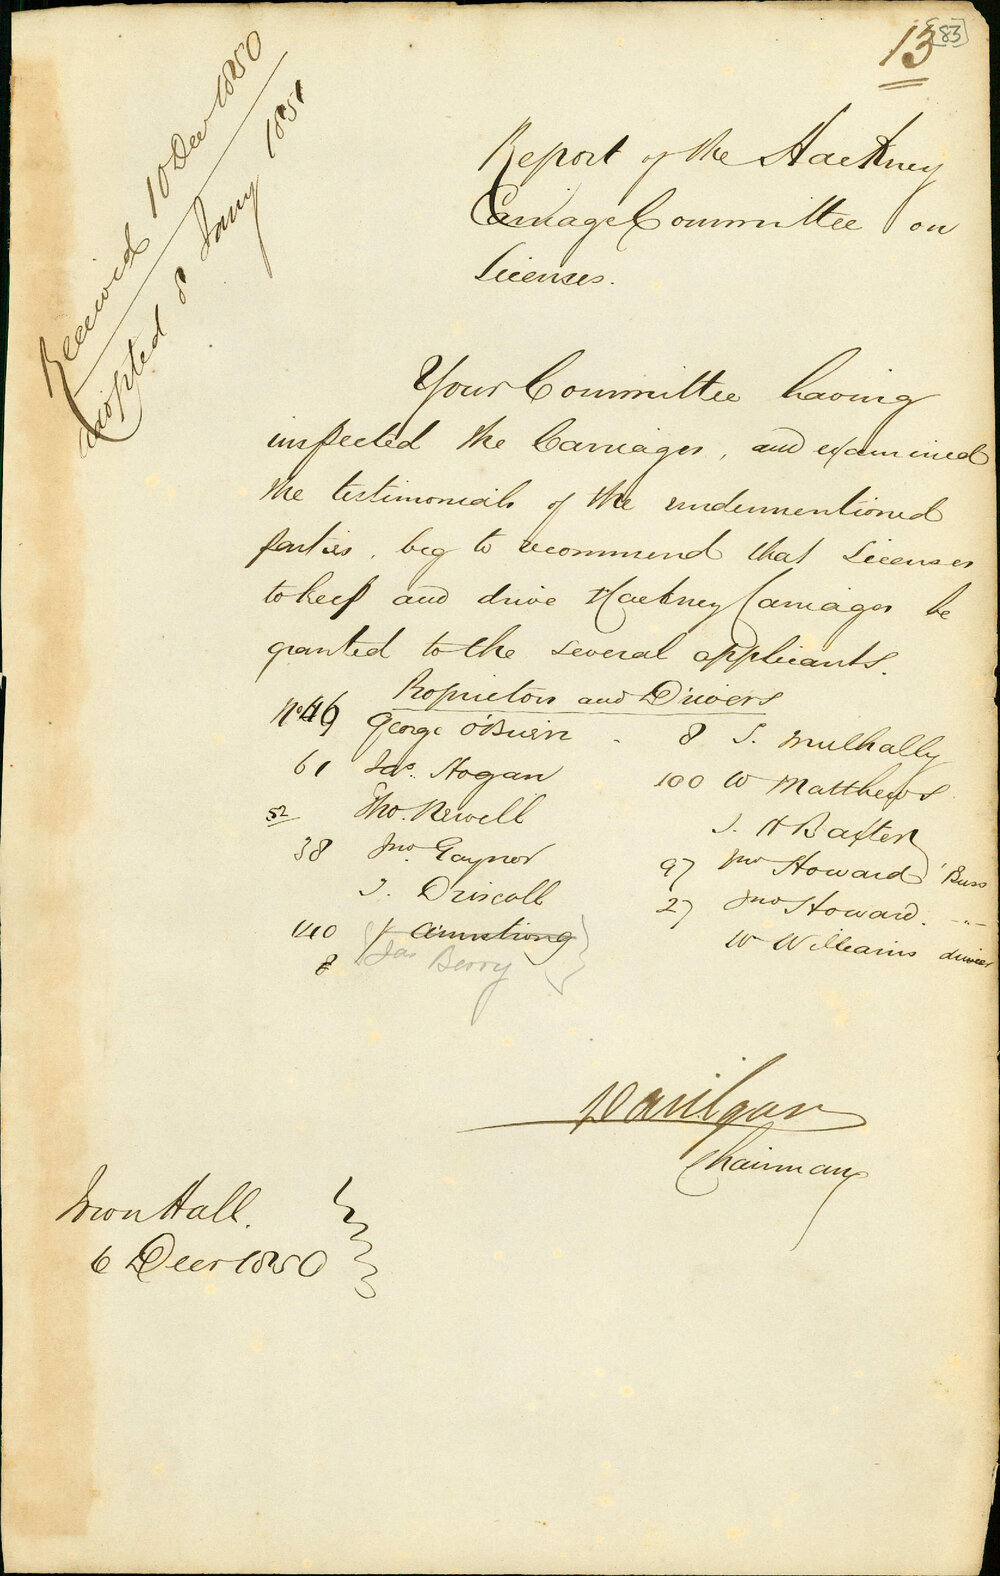 13 [83]
Received 10 Decr 1850
adopted 8 Jany 1851
Report of the Hackney
Carriage Committee on
Licenses.
Your Committee having
inspected the Carriages, and examined
the testimonials of the undermentioned
parties, beg to recommend that Licenses
to keep and drive Hackney Carriages be
granted to the several applicants.
Proprietors and Drivers
No 46 George O'Brien
61 Jas. Hogan
52 Tho. Newell
38 Jno. Gaynor
J. Driscoll
110 J Armstrong
8 Jas Berry
8 J. Mulhally
100 W Matthews
J. H Baxter
97 Jno Howard 'Buss
27 Jno Howard. -"-
W Williams driver
Chairman
Town Hall.
6 Decr 1850